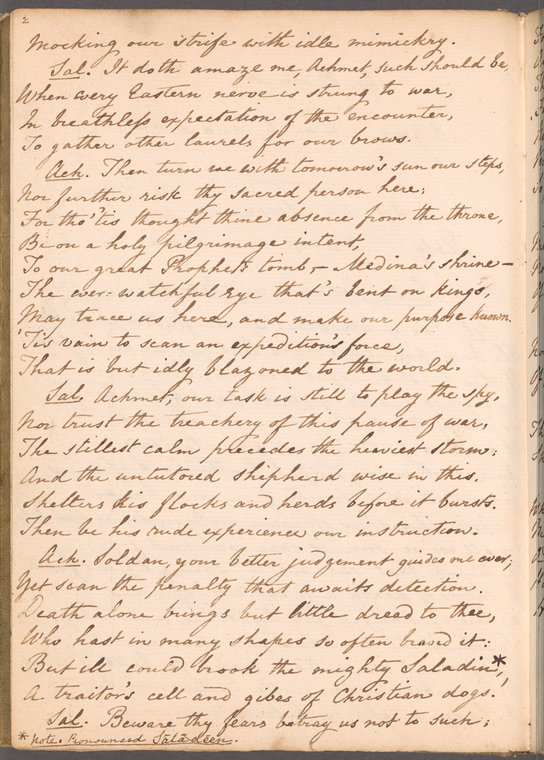 2
Mocking our strife with idle mimickry.
Sal. It doth amaze me, Achmet, such should be,
When every Eastern nerve is strung to war,
In breathless expectation of the encounter,
To gather other laurels for our brows.
Ach. Then turn we with tomorrow's sun our steps,
Nor further risk thy sacred person here;
For tho' 'tis thought thine absence from the throne,
Be on a holy pilgrimage intent,
To our great Prophet's tomb,— Medina's shrine—
The ever-watchful eye that's bent on kings,
May trace us here, and make our purpose known.
'Tis vain to scan an expedition's force,
That is but idly blazoned to the world.
Sal. Achmet, our task is still to play the spy,
Nor trust the treachery of this pause of war,
The stillest calm precedes the heaviest storm;
And the untutored shepherd wise in this,
Shelters his flocks and herds before it bursts.
Then be his rude experience our instruction.
Ach. Soldan, your better judgement guides me ever;
Yet scan the penalty that awaits detection.
Death alone brings but little dread to thee,
Who hast in many shapes so often braved it:
But ill could brook the mighty Saladin*,
A traitor's cell and gibes of Christian dogs.
Sal. Beware thy fears betray us not to such;
* Note. Pronounced Săládeen.